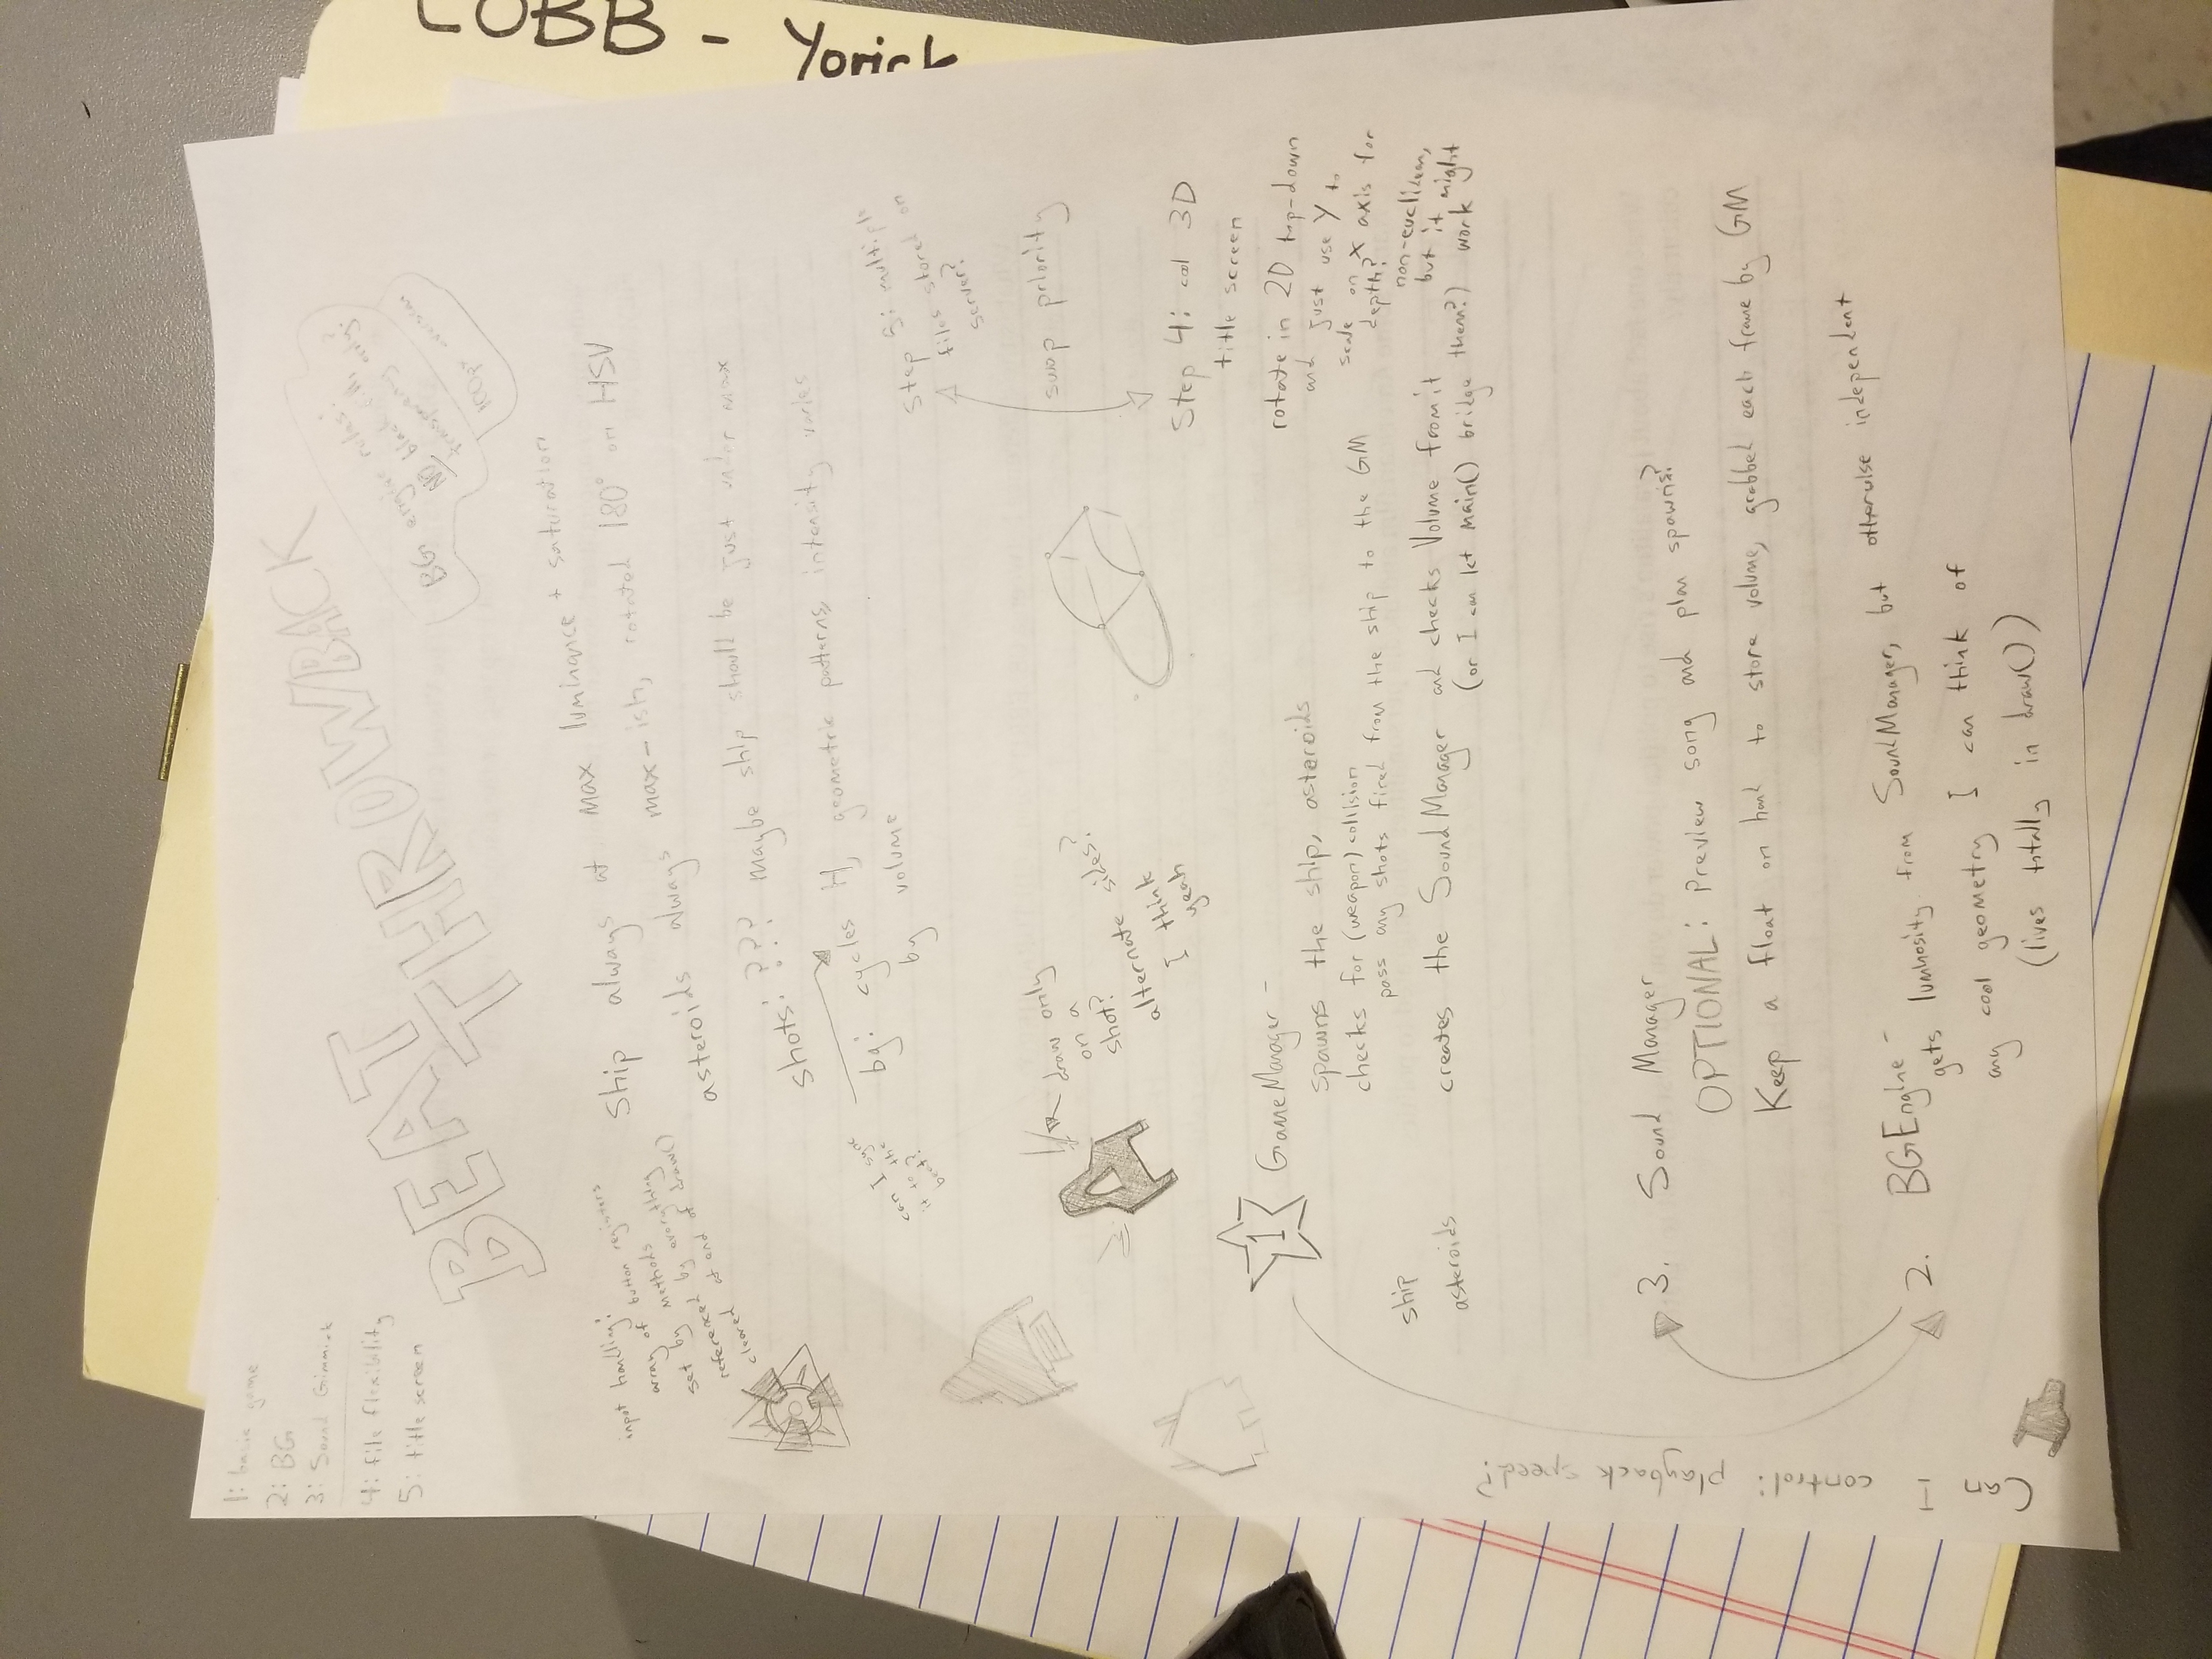 1: basic game
2: BG
3: Sound Gimmick
4: file flexibility
5: title screen
BEAT
THROWBACK
BG engine rules:
NO black fill,
transparency only?
100px overscan
input handling:
array of button registers
set by methods
referenced by everything
cleared at end of draw()
Ship always at max luminance + saturation
asteroids always max-ish, rotated 180° on HSV
shots: ??? maybe ship should be just under max
bg: cycles H, geometric patterns, intensity varies
by volume
can I sync
it to the
beat?
Step 5: multiple
files stored on
server?
swap priority
Step 4: cool 3D
title screen
rotate in 2D top-down
and just use Y to
scale on X axis for
depth?
non-euclidean,
but it might
work
draw only
on a
shot?
alternate sides?
I think
yeah
1 GameManager -
spawns the ship, asteroids
checks for (weapon) collision
pass any shots fired from the ship to the GM
creates the SoundManager and checks Volume from it
(or I can let main() bridge them?)
ship
asteroids
Can I control: playback speed?
3. Sound Manager
OPTIONAL: Preview song and plan spawns?
Keep a float on hand to store volume, grabbed each frame by GM
2. BGEngine -
gets luminosity from SoundManager, but otherwise independent
any cool geometry I can think of
(lives totally in draw())
COBB - Yorick